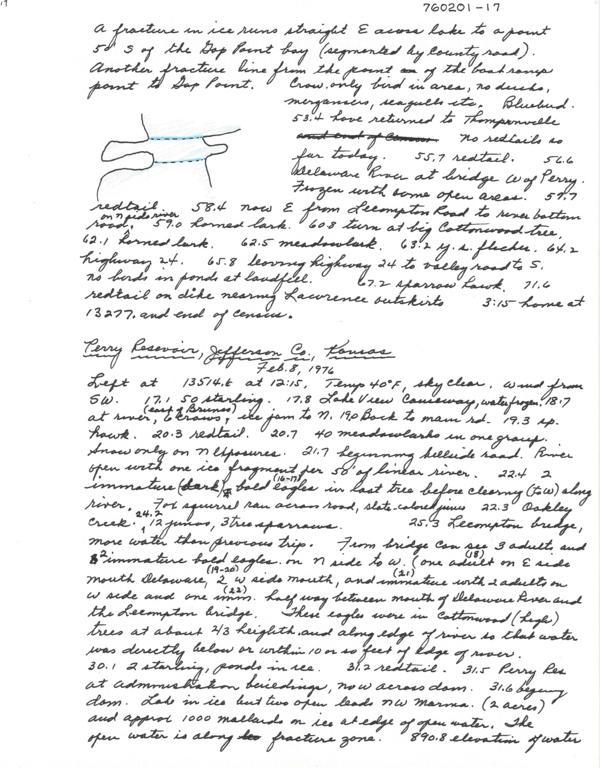 760201-17
A fracture in ice runs straight E across lake to a point
50' S of the Gap Point bay (segmented by county road).
Another fracture line from the point of the boat ramp
point to Gap Point. Crow, only bird in area, no ducks,
mergansers, seagulls etc. Bluebird.
53.4 have returned to Thompsonville
and end of Census No redtails so
far today. 55.7 redtail. 56.6
Delaware River at bridge W of Perry.
Frozen with some open areas. 57.7
redtail. 58.4 now E from Lecompton Road to river bottom
on N side river
road. 59.0 horned lark. 60.8 turn at big Cottonwood tree,
62.1 horned lark. 62.5 meadowlark. 63.2 y.s. flicker. 64.2
highway 24. 65.8 leaving highway 24 to valley road to S.
no birds in ponds at landfill. 67.2 sparrow hawk. 71.6
redtail on dike nearing Lawrence outskirts 3:15 home at
13277. and end of census.
Perry Resevoir, Jefferson Co., Kansas
Feb. 8, 1976
Left at 13514.6 at 12:15. Temp 40°F, sky clear. Wind from
SW. 17.1 50 starling. 17.8 Lake View Causeway, water frozen. 18.7
(east of Brunes)
at river, 6 crows, ice jam to N. 19.0 Back to main rd. 19.3 sp.
hawk. 20.3 redtail. 20.7 40 meadowlarks in one group.
Snow only on N exposures. 21.7 beginning hillside road. River
open with one ice fragment per 50' of linear river. 22.4 2
(16-17)
immature (dark) bald eagles in last tree before clearing (to W) along
river. Fox squirrel ran across road, slate-colored juncos 22.3 Oakley
24.2
Creek. 12 juncos, 3 tree sparrows. 25.3 Lecompton bridge,
more water than previous trip. From bridge can see 3 adult, and
(18)
2 immature bald eagles. on N side to W. (one adult on E side
(19-20) (21)
mouth Delaware, 2 W side mouth, and immature with 2 adults on
(22)
W side and one imm. half way between mouth of Delaware River and
the Lecompton bridge. These eagles were in Cottonwood (high)
trees at about 2/3 heighth and along edge of river so that water
was directly below or within 10 or so feet of edge of river.
30.1 2 starling, ponds in ice. 31.2 redtail. 31.5 Perry Res
at Administration buildings, now across dam. 31.6 beging
dam. Lake in ice but two open leads NW Marina. (2 acres)
and approx 1000 mallards on ice at edge of open water. The
open water is along fracture zone. 890.8 elevation of water